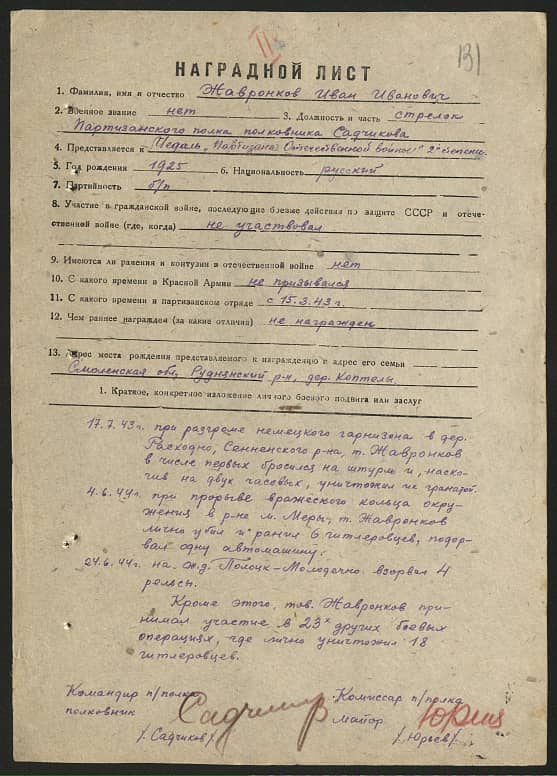 II
131
НАГРАДНОЙ ЛИСТ
1. Фамилия, имя и отчество Жавронков Иван Иванович
2. Военное звание нет 3. Должность и часть стрелок
Партизанского полка полковника Садчикова
4. Представляется к Медаль „Партизана Отечественной войны" 2й степень
5. Год рождения 1925 6. Национальность русский
7. Партийность б/п
8. Участие в гражданской войне, последующие боевые действия по защите СССР и отече-
ственной войне (где, когда) не участвовал
9. Имеются ли ранения и контузии в отечественной войне нет
10. С какого времени в Красной Армии не призывался
11. С какого времени в партизанском отряде с 15.3.43 г.
12. Чем раннее награжден (за какие отличия) не награжден
13. Адрес места рождения представляемого к награждению и адрес его семьи
Смоленская обл, Руднянский р-н, дер. Коптелы.
1. Краткое, конкретное изложение личного боевого подвига или заслуг
17.7.43г. при разгроме немецкого гарнизона в дер.
Расходно, Сенненского р-на, т. Жавронков
в числе первых бросился на штурм и, наско-
чив на двух часовых, уничтожил их гранатой.
4.6.44г. при прорыве вражеского кольца окру-
жения в р-не м. Меры, т. Жавронков
лично убил и ранил 6 гитлеровцев, подор-
вал одну автомашину.
24.6.44г. на ж.д. Полоцк-Молодечно взорвал 4
рельсы.
Кроме этого, тов. Жавронков при-
нимал участие в 23х других боевых
операциях, где лично уничтожил 18
гитлеровцев.
Командир п/полка Комиссар п/полка
полковник Садчиков майор Юрьев
/. Садчиков/. /. Юрьев/.